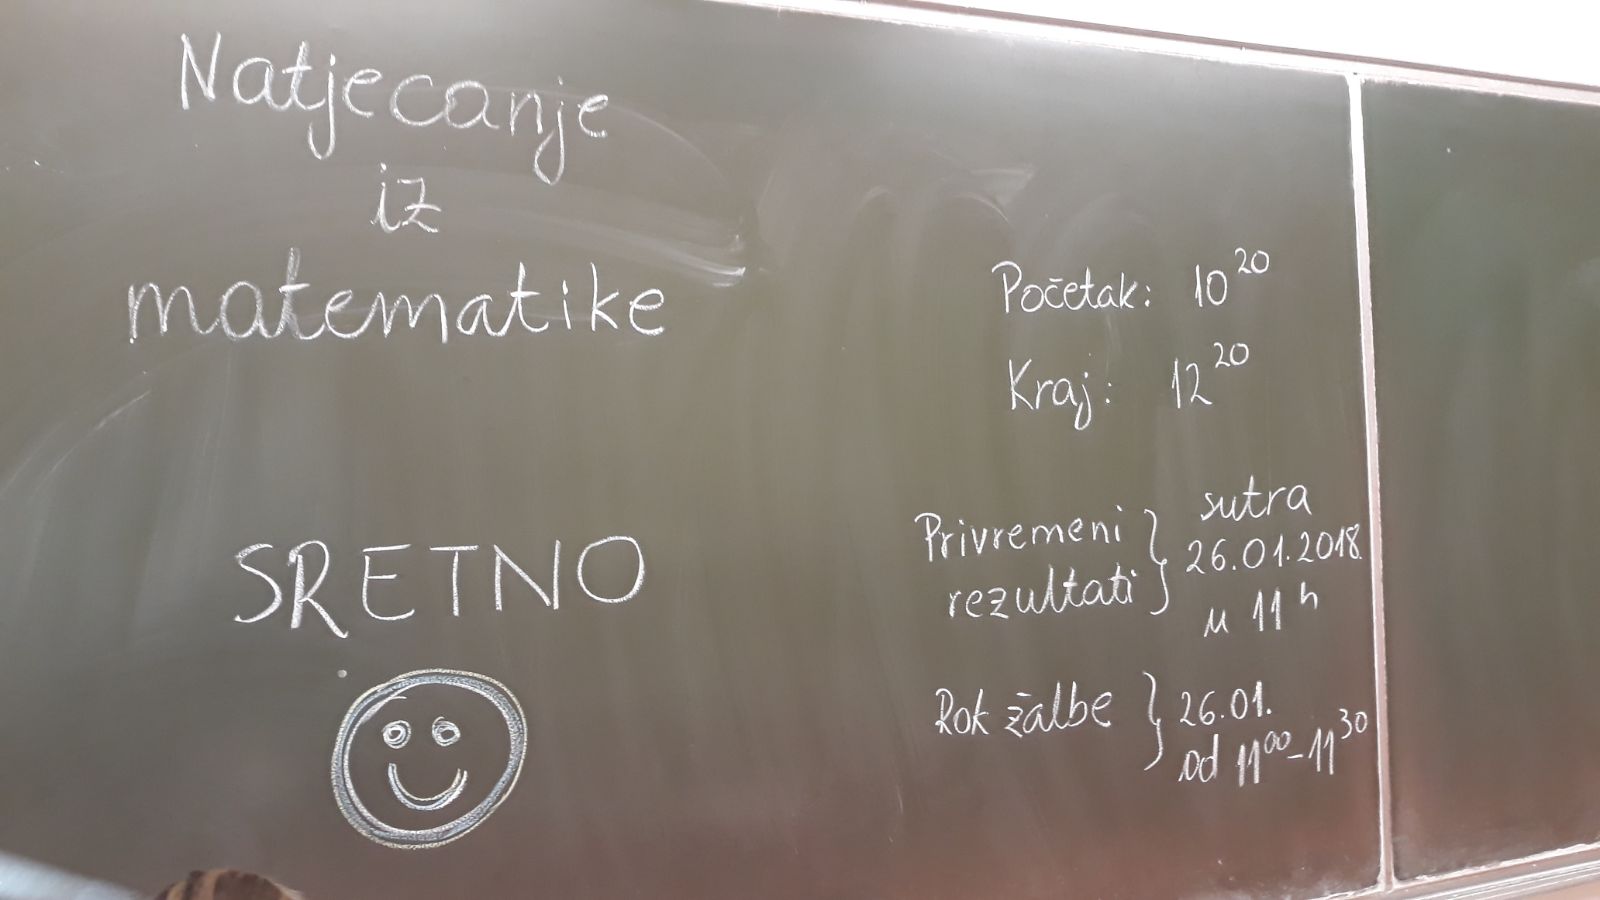 Natjecanje
iz
matematike
SRETNO
Početak: 10²⁰
Kraj: 12²⁰
Privremeni
rezultati
}
sutra
26.01.2018.
u 11 h
Rok žalbe
}
26.01.
od 11⁰⁰-11³⁰